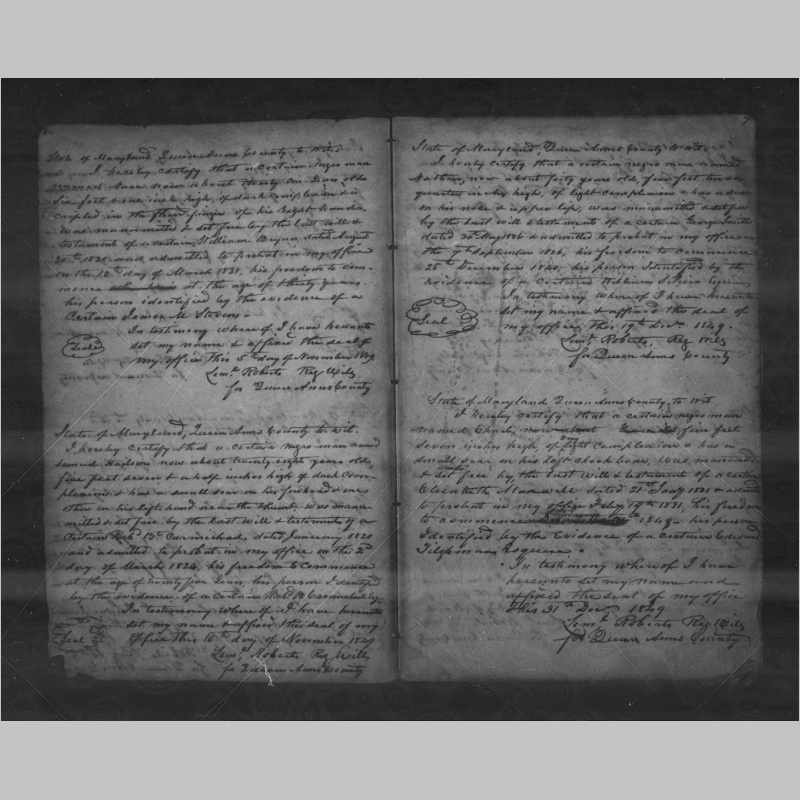 State of Maryland Queen Anns County to wit.
I hereby certify that a certain Negro man
now about twenty six years old
five feet nine inches high, of dark complexion &
crippled in the three fingers of his Right hand
was manumitted & set free by the last will &
testament of a certain William Bryan dated August
20th 1821 and admitted to probat in my office
on the 12th day of March 1831, his freedom to com-
mence at the age of thirty years
his person identified by the evidence of a
Certain James M Stevens.
In testimony whereof I have hereunto
Seal set my name & affixed the seal of
my office this 5th day of November 1849
Leml. Roberts Reg Wills
for Queen Anns County
State of Maryland, Queen Anns County to wit.
I hereby certify that a certain negro man named
Samuel now about twenty eight years old,
five feet seven & a half inches high of dark com-
plexion & has a small scar on his forehead & one
other on his left hand near the thumb, was manu-
mitted & set free by the last Will & testament of a
Certain Carmichael, dated January 1820
and admitted to probat in my office on the 2d
day of March 1824, his freedom to Commence
at the age of twenty five Years, his person Identified
by the evidence of a Certain Carmichael
In testimony whereof I have hereunto
Seal set my name & affixed the seal of my
office this 16th day of November 1849
Leml. Roberts Reg Wills
for Queen Anns County
State of Maryland, Queen Anns County to wit
I hereby certify that a certain negro man named
now about forty years old, five feet
inches high, of light complexion & has a scar
on his nose & upper lip, was manumitted & set free
by the last will & testament of a certain
dated May 1826 & admitted to probat in my office on
the 7th September 1826, his freedom to commence
25th December 1840, his person Identified by the
evidence of a Certain
In testimony whereof I have hereunto
Seal set my name & affixed the seal of
my office this 19th Decr. 1849.
Leml. Roberts, Reg Wills
for Queen Anns County
State of Maryland Queen Anns County, to wit
I hereby certify that a certain negro man
named Charles now about five feet
seven inches high of light Complexion & has a
small scar on his left cheek bone, was manumitted
& set free by the last Will & testament of a certain
Elizabeth dated 21st Jany 1831 & admitted
to probat in my office Feby 19th 1831, his freedom
to commence 1849 his person
Identified by the Evidence of a Certain
Tilghman Esquire.
In testimony whereof I have
hereunto set my name and
affixed the seal of my office
this 31st Decr 1849
Leml. Roberts Reg Wills
for Queen Anns County